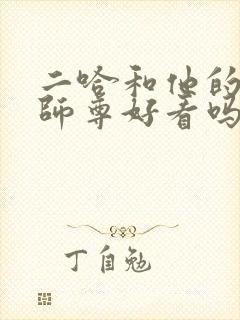 二哈和他的
師尊好看吗
丁自勉